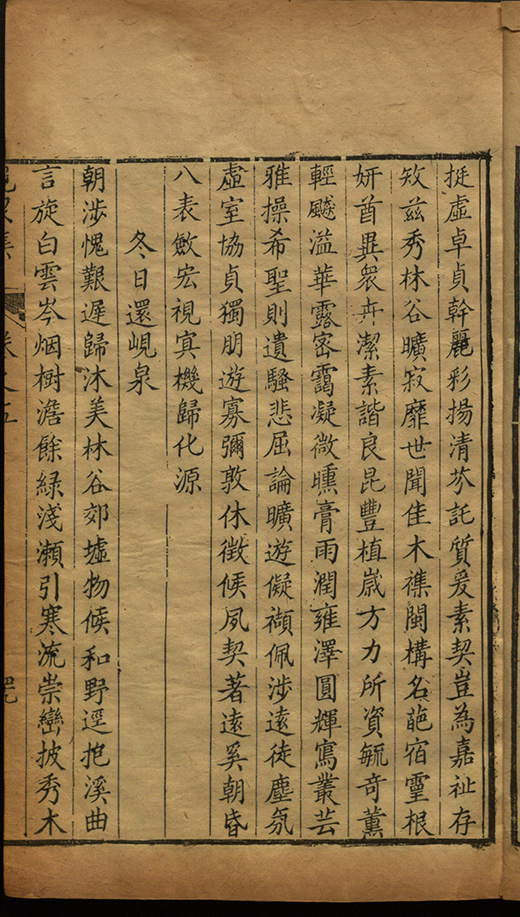 挺虛卓貞幹麗彩揚清芬託質爰素契豈為嘉祉存
欵茲秀林谷曠寂靡世聞佳木襍閩構名葩宿靈根
妍酋異衆卉潔素諧良昆豐植嵗方力所資毓奇薰
輕飇溢華露密靄凝微曛膏雨潤雍澤圓輝寫叢芸
雅操希聖則遺騷悲屈論曠遊儗襭佩涉遠徒塵氛
虛室協貞獨朋遊寡彌敦休徵候夙契著遠奚朝昏
八表敏宏視寘機歸化源
冬日還峴泉
朝涉愧艱遲歸沐美林谷郊墟物候和野逕抱溪曲
言旋白雲岑烟樹澹餘綠淺瀨引寒流崇巒披秀木